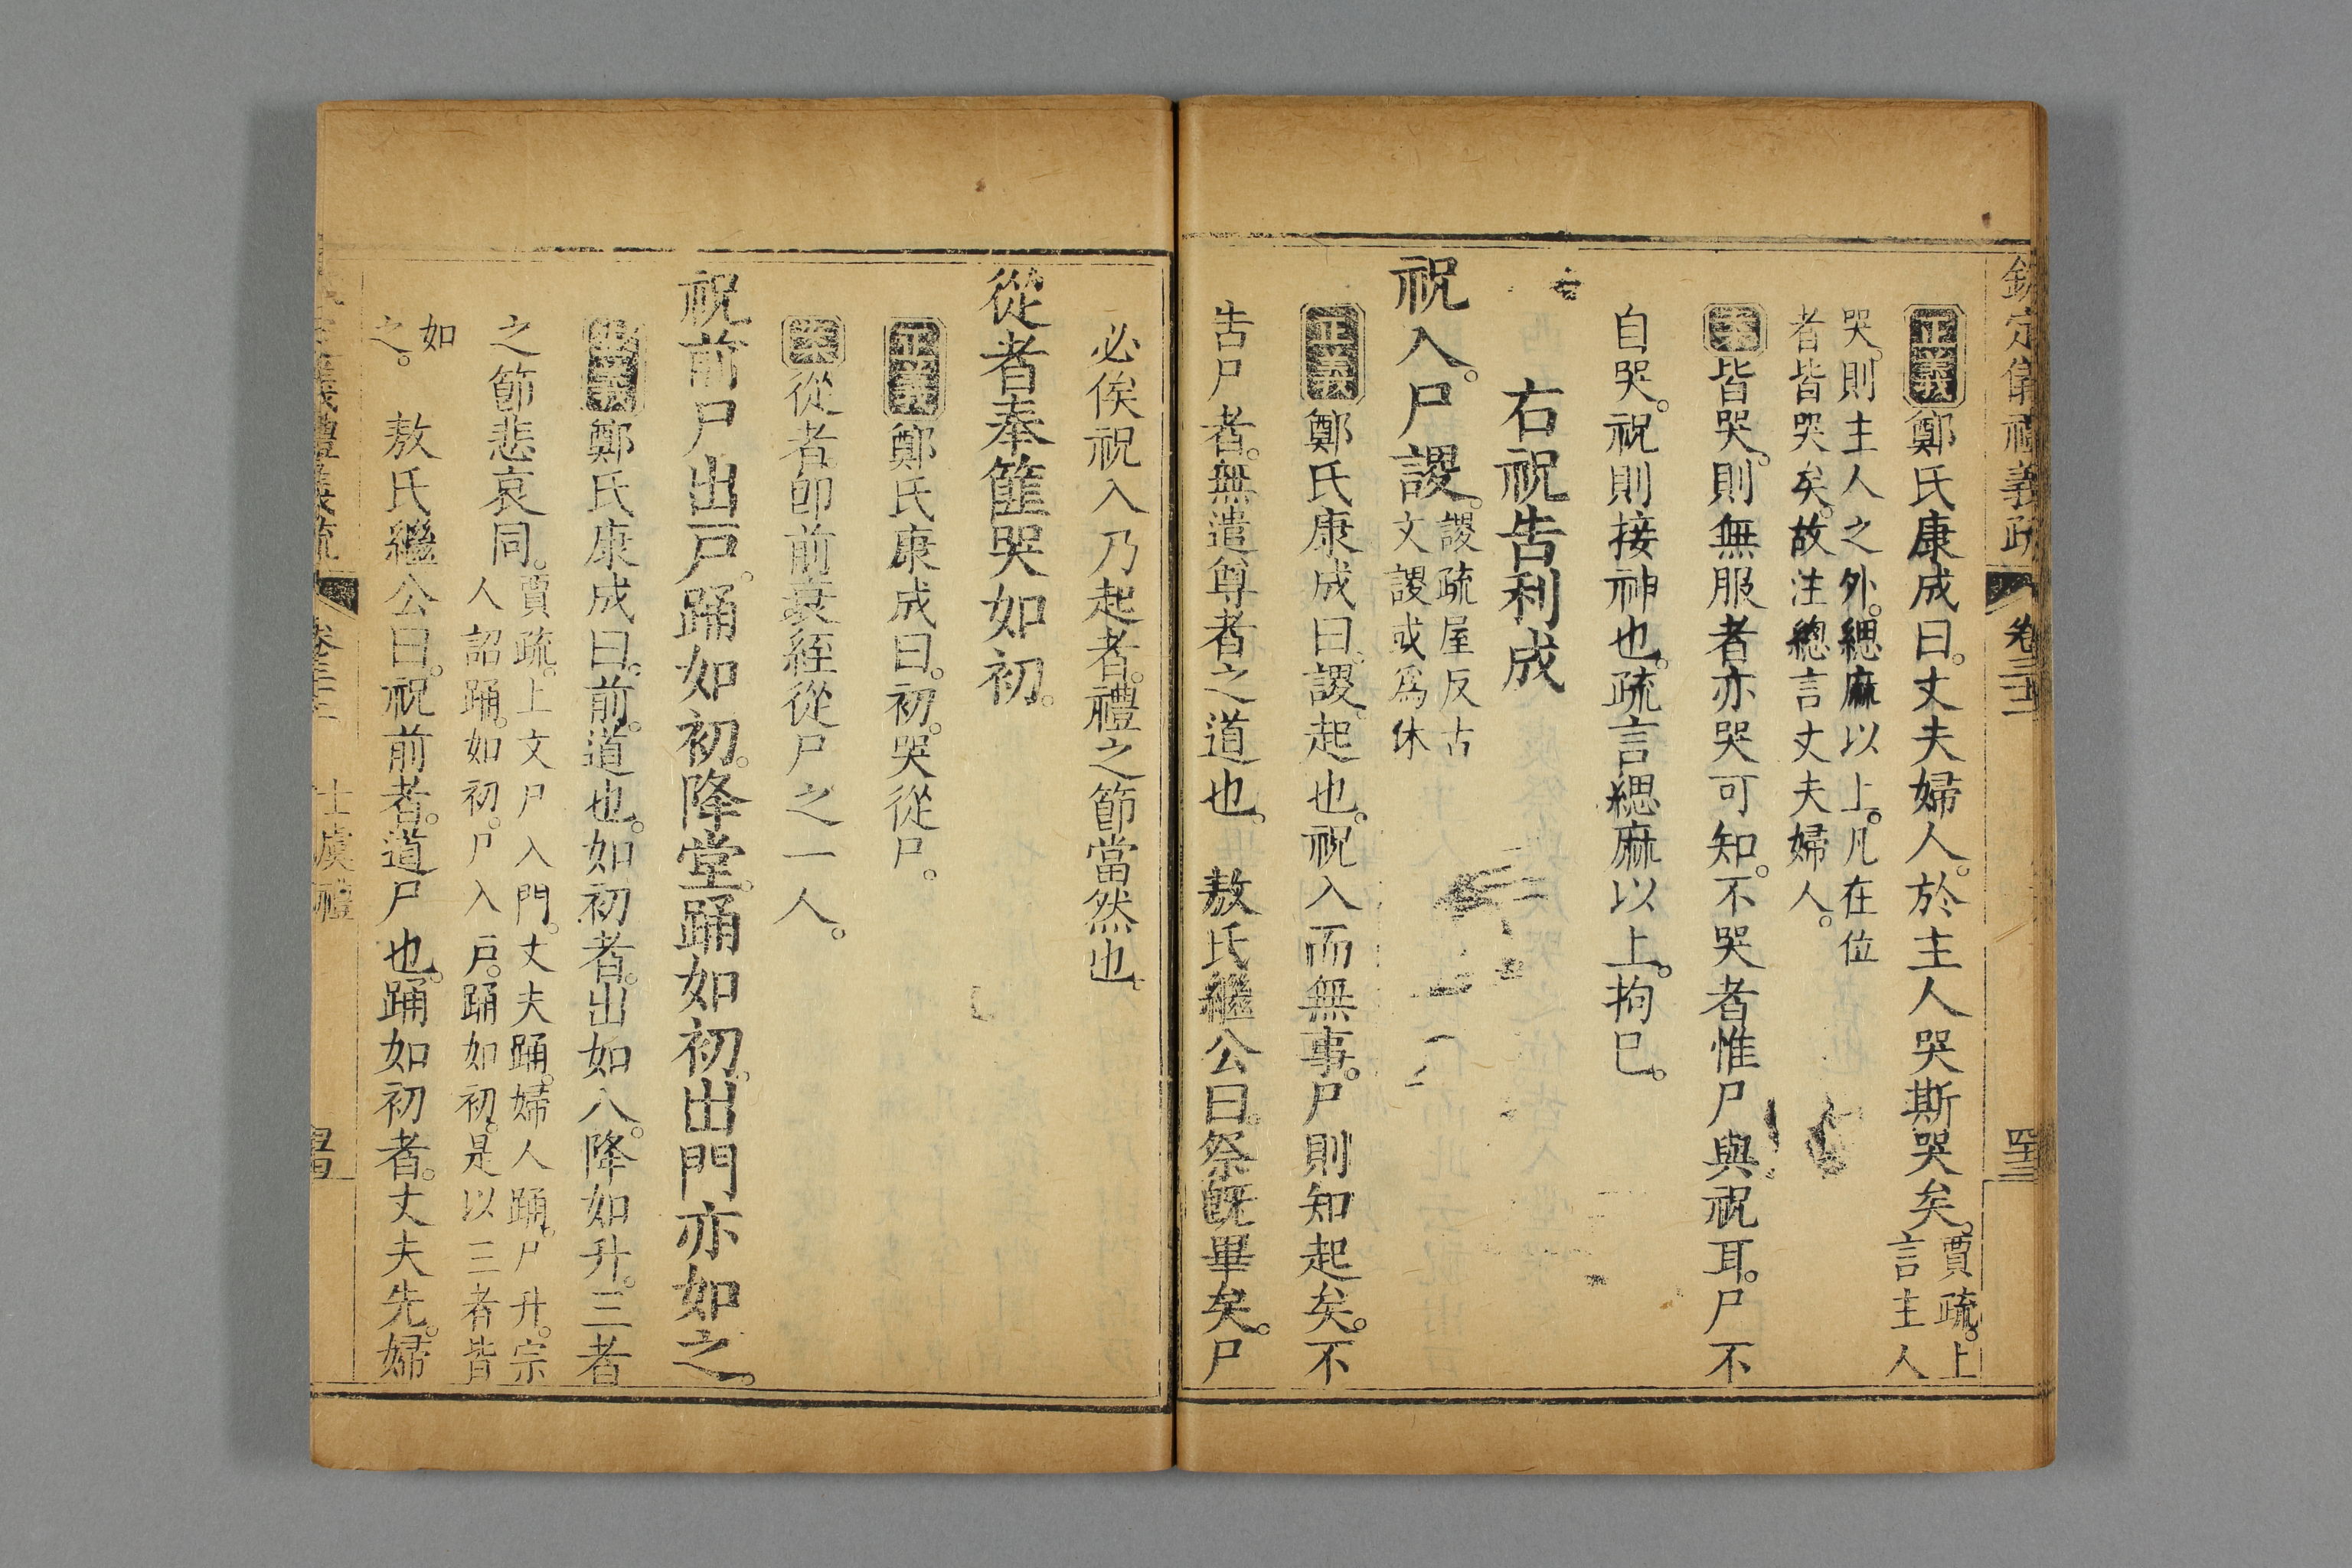 欽定儀禮義疏 卷三十三 四十三
正義鄭氏康成曰。丈夫婦人。於主人哭斯哭矣。賈疏。上言主人
哭。則主人之外。緦麻以上。凡在位者皆哭矣。故注總言丈夫婦人。
案皆哭。則無服者亦哭可知。不哭者惟尸與祝耳。尸不
自哭。祝則接神也。疏言緦麻以上。拘已。
右祝告利成
祝入。尸謖。謖疏屋反古文謖或爲休
正義鄭氏康成曰。謖。起也。祝入而無事。尸則知起矣。不
告尸者。無遣尊者之道也。 敖氏繼公曰。祭旣畢矣。尸
必俟祝入乃起者。禮之節當然也。
從者奉篚哭如初。
正義鄭氏康成曰。初。哭從尸。
案從者。卽前衰絰從尸之一人。
祝前尸出戸。踊如初。降堂。踊如初。出門亦如之。
正義鄭氏康成曰。前。道也。如初者。出如入。降如升。三者
之節悲哀同。賈疏。上文尸入門。丈夫踊。婦人踊。尸升。宗人詔踊。如初。尸入戸。踊如初。是以三者皆
如之。 敖氏繼公曰。祝前者。道尸也。踊如初者。丈夫先。婦
義禮義疏 卷三十三 士虞禮